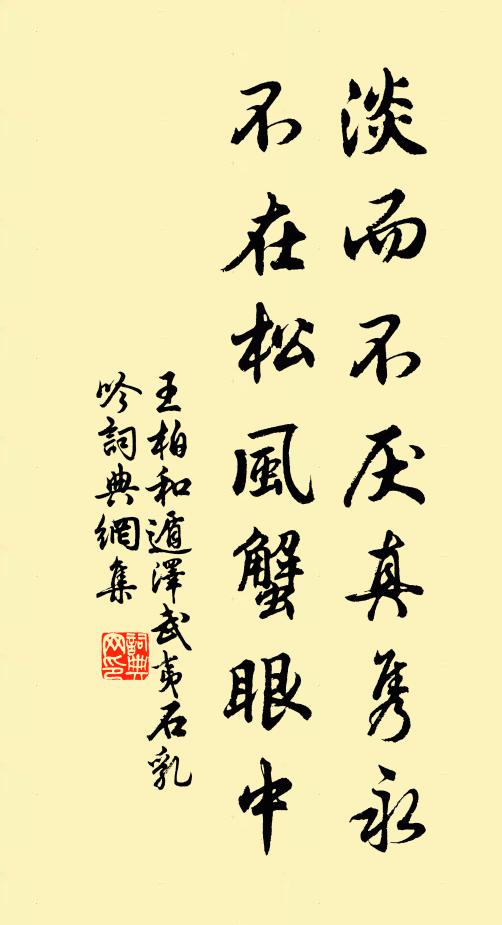 淡而不厌真隽永
不在松風蟹眼中
王柏和遁澤武夷石乳
吟詞典網集
詞典网印